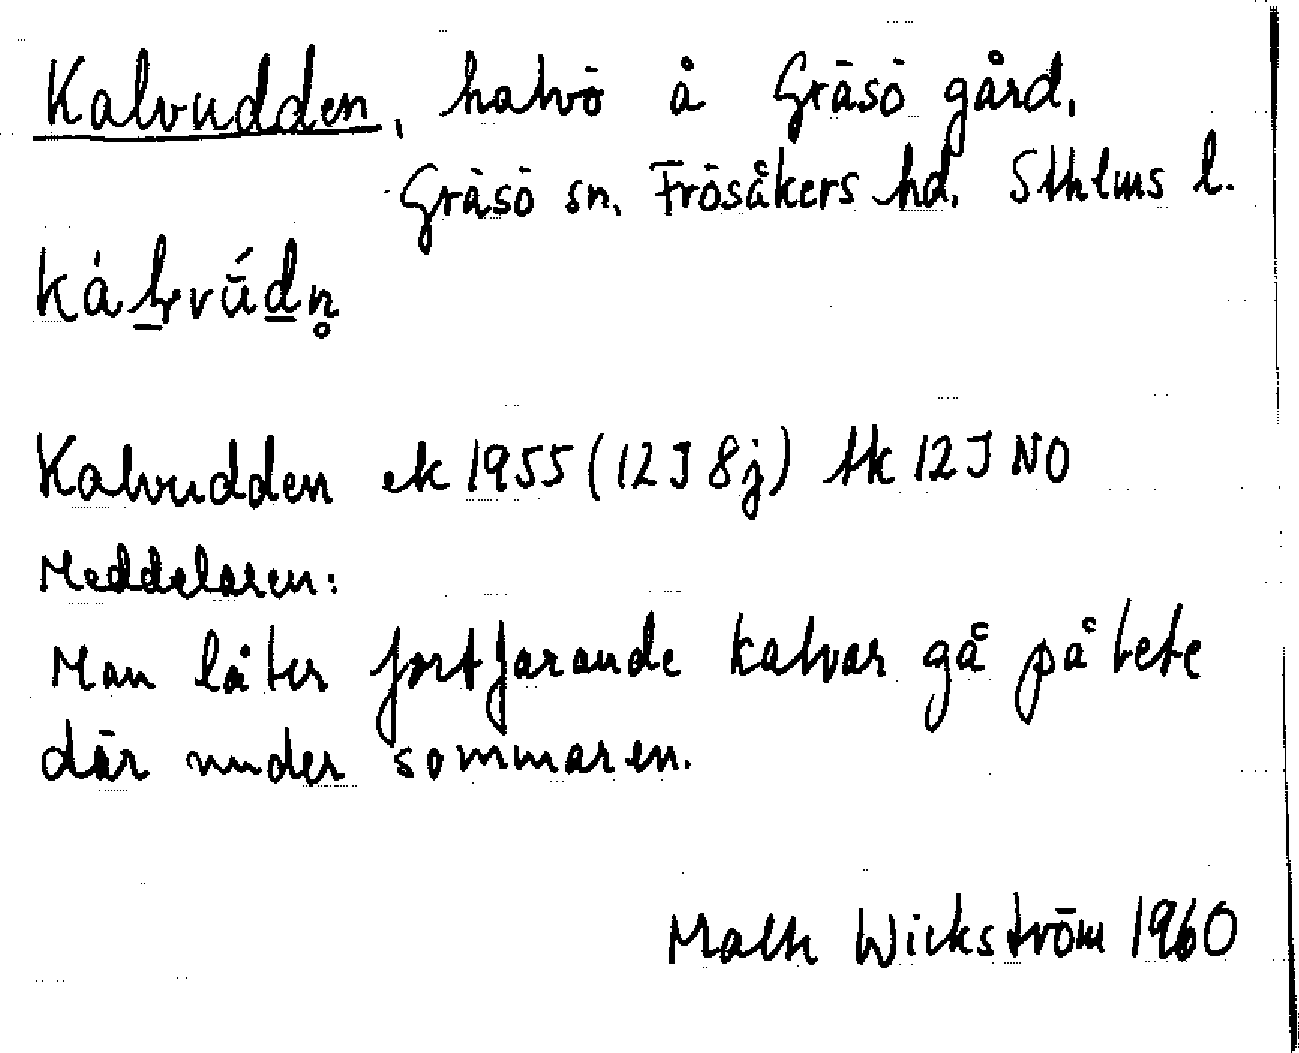 Kalvudden, halvö å Gräsö gård,
Gräsö sn, Frösåkers hd, Sthlms l.
Kalvudden ek 1955 (12J 8j) tk 12J NO
Meddelaren:
Man låter fortfarande kalvar gå på bete
där under sommaren.
Math Wickström 1960